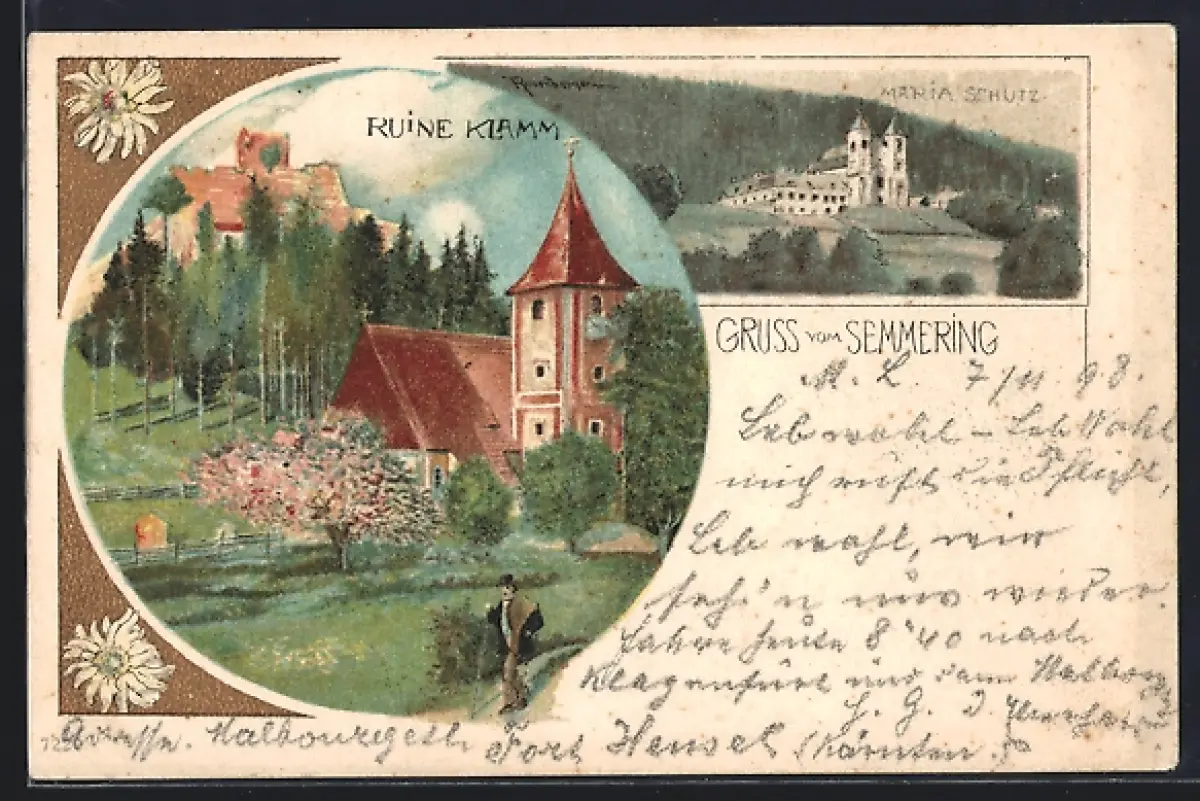 RUINE KLAMM
MARIA SCHUTZ
GRUSS vom SEMMERING
M. L. 7/11 98.
Leb wohl – Leb Wohl
mich ruft die Pflicht,
Leb wohl, wir
seh'n uns wieder.
Fahre heute 8 40 nach
Klagenfurt und dann
H. G.
Adresse. Malborgeth Fort Hensel (Kärnten.)